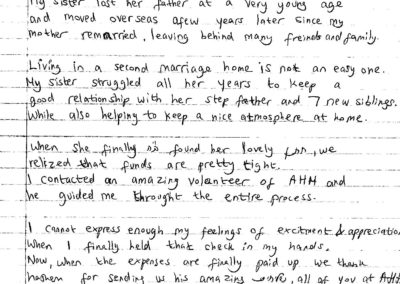 My sister lost her father at a very young age
and moved overseas afew years later since my
mother remarried, leaving behind many freinds and family.
Living in a second marriage home is not an easy one.
My sister struggled all her years to keep a
good relationship with her step father and 7 new siblings.
While also helping to keep a nice atmosphere at home.
When she finally found her lovely we
relized that funds are pretty tight.
I contacted an amazing volunteer of AHH and
he guided me throught the entire process.
I cannot express enough my feelings of excitment & appreciation
When I finally held that check in my hands.
Now, when the expenses are finally paid up we thank
hashem for sending us his amazing all of you at AHH